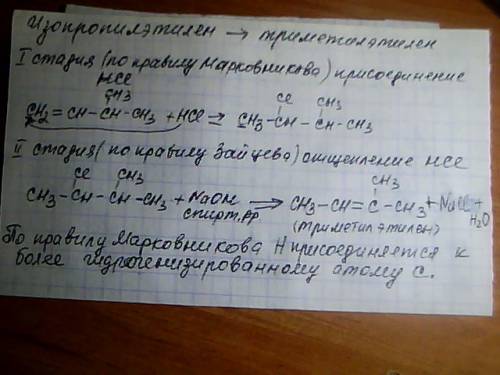 Изопропилэтилен → триметилэтилен
I стадия (по правилу Марковникова) присоединение
HCl
CH3
CH2 = CH - CH - CH3 + HCl → CH3 - CH - CH - CH3
Cl CH3
II стадия (по правилу Зайцева) отщепление HCl
Cl CH3
CH3 - CH - CH - CH3 + NaOH → CH3 - CH = C - CH3 + NaCl +
CH3
спирт. рр
(триметилэтилен) H2O
По правилу Марковникова H присоединяется к
более гидрогенизированному атому C.